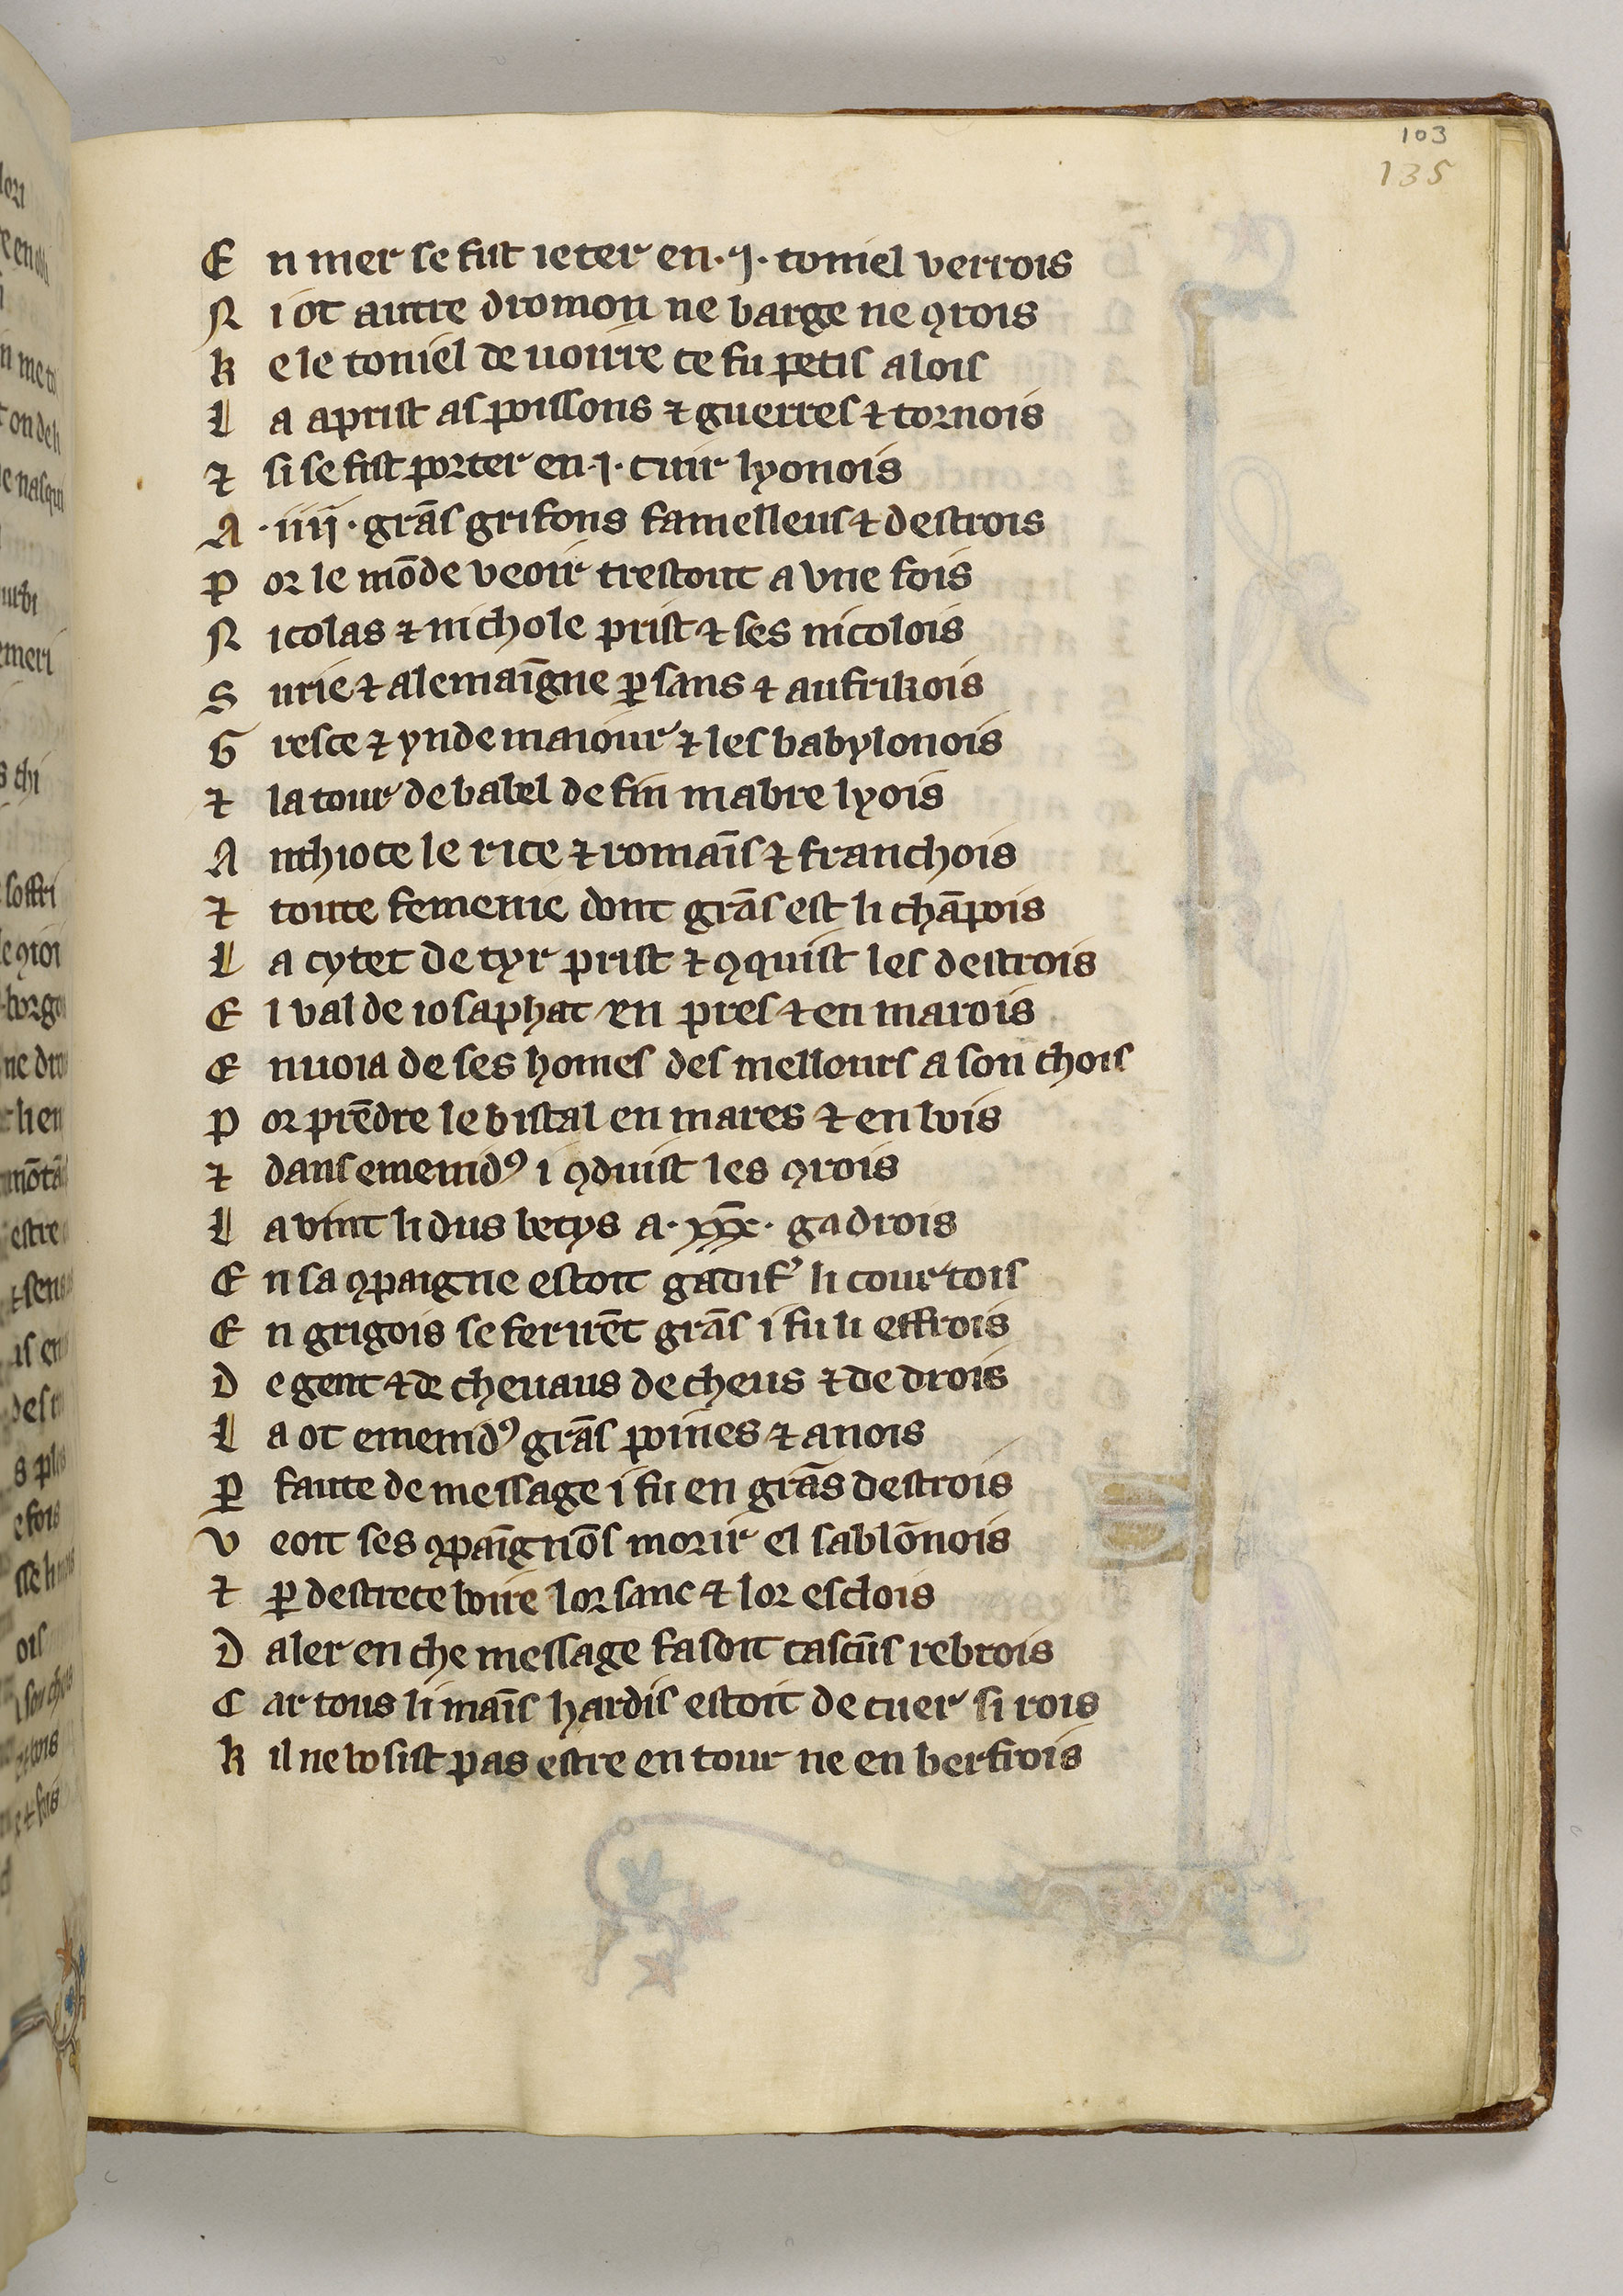 103
135
E n mer se fist ieter en ·ȷ· toniel verrois
N i ot autre dromon ne barge ne ꝯrois
k e le toniel de uoirre ce fu petis alois
L a aprist as poissons ⁊ guerres ⁊ tornois
⁊ si se fist porter en ·ȷ· cuir lyonois
A ·iiij· grãs grifons familleus ⁊ destrois
P or le mõde veoir trestout a vne fois
N icolas ⁊ nichole prist ⁊ ses nicolois
S urie ⁊ alemaĩgne ꝑsans ⁊ aufrikois
G resce ⁊ ynde maiour ⁊ les babylonois
⁊ la tour de babel de fin mabre lyois
A nthioce le rice ⁊ romaĩs ⁊ franchois
⁊ toute femenie dont grãs est li chãpois
L a cytet de tyr prist ⁊ ꝯquist les destrois
E l val de iosaphat en pres ⁊ en marois
E nuoia de ses homes des mellours a son chois
P or prẽdre le bistal en mares ⁊ en bois
⁊ dans emenidꝰ i ꝯduist les ꝯrois
L a vint li dus betys a ·xxx̃· gadrois
E n sa ꝯpaigne estoit gadif' li courtois
E n grigois se ferirẽt grãs i fu li effrois
D e gent ⁊ de cheuaus de cheus ⁊ de drois
L a ot emenidꝰ grãs poines ⁊ anois
ꝑ faute de message i fu en grãs destrois
V eoit ses ꝯpaĩgnõs morir el sablõnois
⁊ ꝑ destrece boire lor sanc ⁊ lor esclois
D aler en che message fasoit cascũs rebrois
C ar tous li maĩs hardis estoit de cuer si rois
K il ne vosist pas estre en tour ne en berfrois